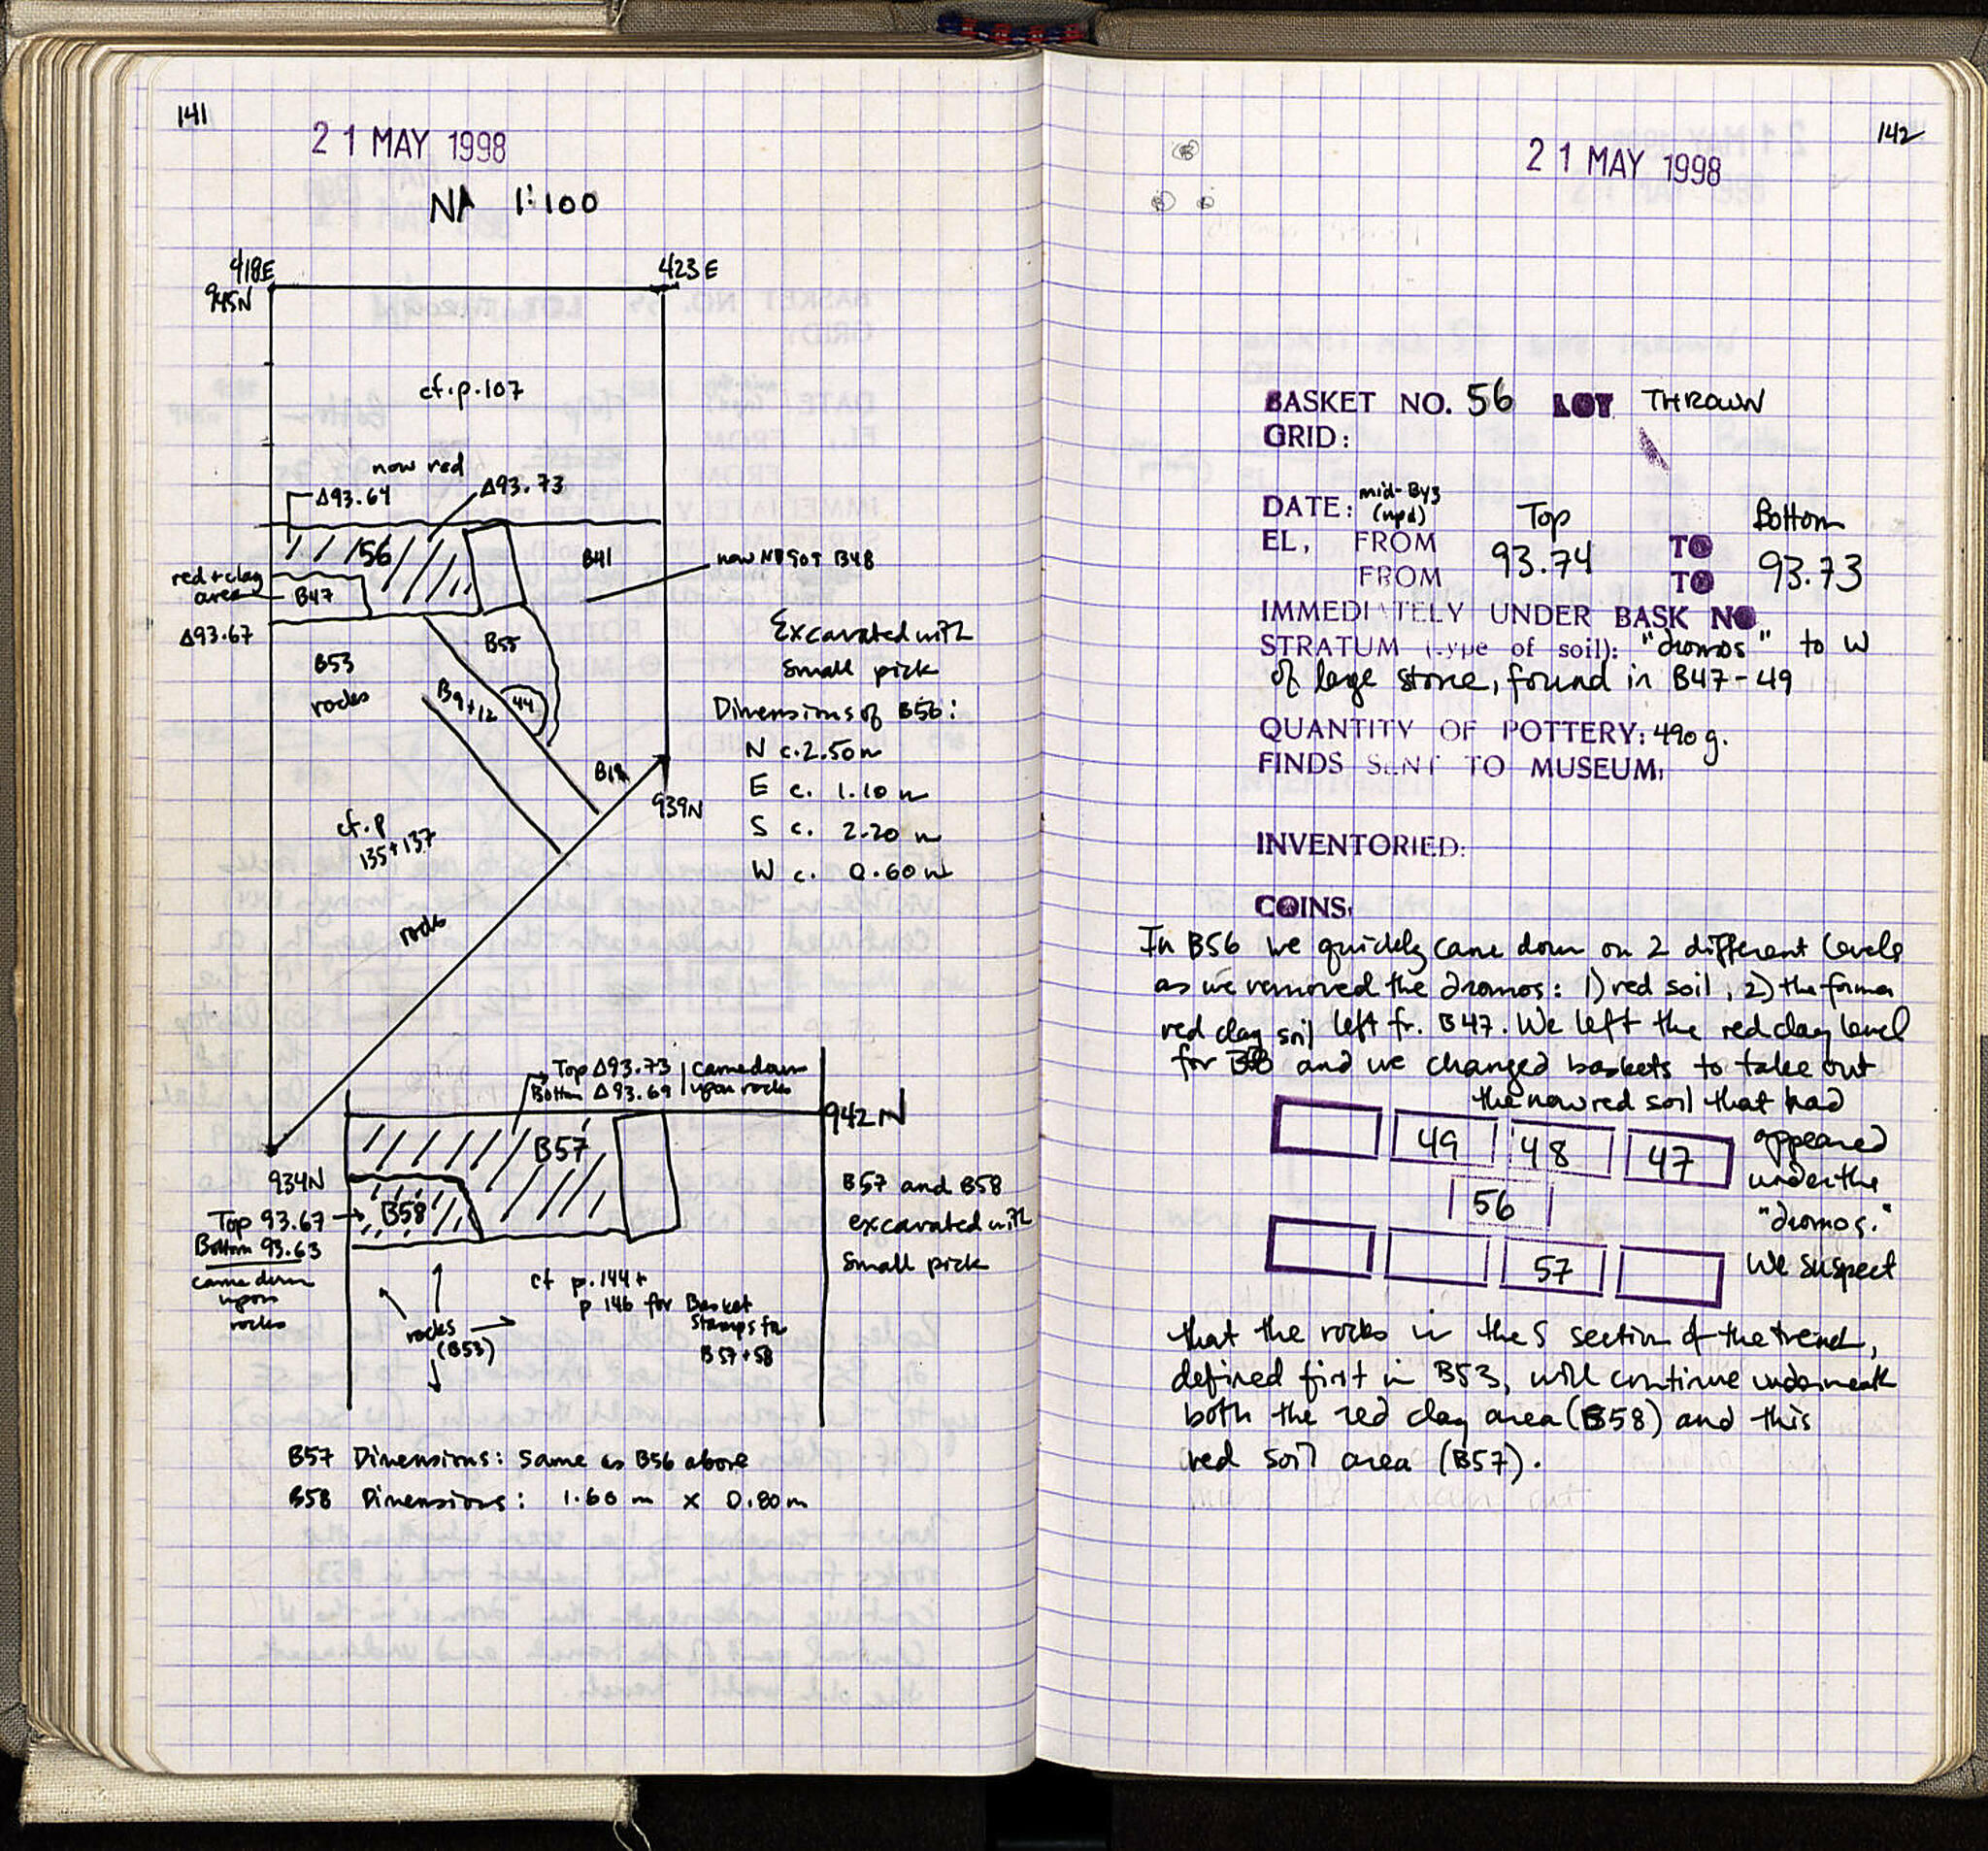 141
21 MAY 1998
NA 1:100
418E
945N
423E
cf. p. 107
now red
Δ93.64
Δ93.73
56
B41
red + clay
area
B47
Δ93.67
B55
B53
rocks
B9+12
44
939N
cf. p
135+137
rocks
Excavated with
small pick
Dimensions of B56:
N c. 2.50 m
E c. 1.10 m
S c. 2.20 m
W c. 0.60 m
934N
Top Δ93.73 | came down
Bottom Δ93.69 | upon rocks
942N
B57
B58
Top 93.67
Bottom 93.63
came down
upon
rocks
B57 and B58
excavated with
small pick
cf p. 144 +
p 146 for Basket
Stamps for
B57+58
rocks
(B53)
B57 Dimensions: same as B56 above
B58 Dimensions: 1.60 m x 0.80 m
142
21 MAY 1998
BASKET NO. 56 LOT THROWN
GRID:
DATE: mid-Byz
(npd)
Top
Bottom
EL, FROM 93.74 TO 93.73
FROM TO
IMMEDIATELY UNDER BASK NO
STRATUM (type of soil): "dromos" to W
of large stone, found in B47-49
QUANTITY OF POTTERY: 490 g.
FINDS SENT TO MUSEUM:
INVENTORIED:
COINS:
In B56 we quickly came down on 2 different levels
as we removed the dromos: 1) red soil, 2) the former
red clay soil left fr. B47. We left the red clay level
for and we changed baskets to take out
the now red soil that had
appeared
under the
"dromos."
We suspect
49 48 47
56
57
that the rocks in the S section of the trench,
defined first in B53, will continue underneath
both the red clay area (B58) and this
red soil area (B57).